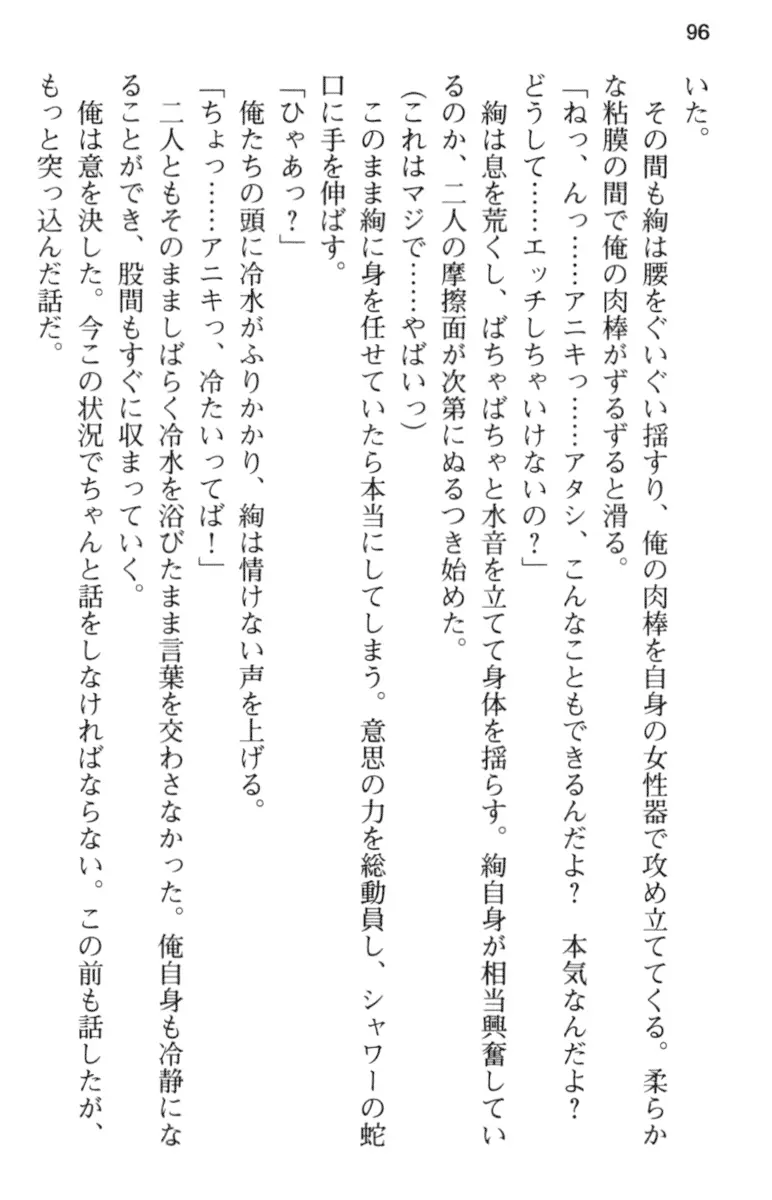 96
いた。
　その間も絢は腰をぐいぐい揺すり、俺の肉棒を自身の女性器で攻め立ててくる。柔らか
な粘膜の間で俺の肉棒がずるずると滑る。
「ねっ、んっ……アニキっ……アタシ、こんなこともできるんだよ？　本気なんだよ？
どうして……エッチしちゃいけないの？」
　絢は息を荒くし、ばちゃばちゃと水音を立てて身体を揺らす。絢自身が相当興奮してい
るのか、二人の摩擦面が次第にぬるつき始めた。
（これはマジで……やばいっ）
　このまま絢に身を任せていたら本当にしてしまう。意思の力を総動員し、シャワーの蛇
口に手を伸ばす。
「ひゃあっ？」
　俺たちの頭に冷水がふりかかり、絢は情けない声を上げる。
「ちょっ……アニキっ、冷たいってば！」
　二人ともそのまましばらく冷水を浴びたまま言葉を交わさなかった。俺自身も冷静にな
ることができ、股間もすぐに収まっていく。
　俺は意を決した。今この状況でちゃんと話をしなければならない。この前も話したが、
もっと突っ込んだ話だ。